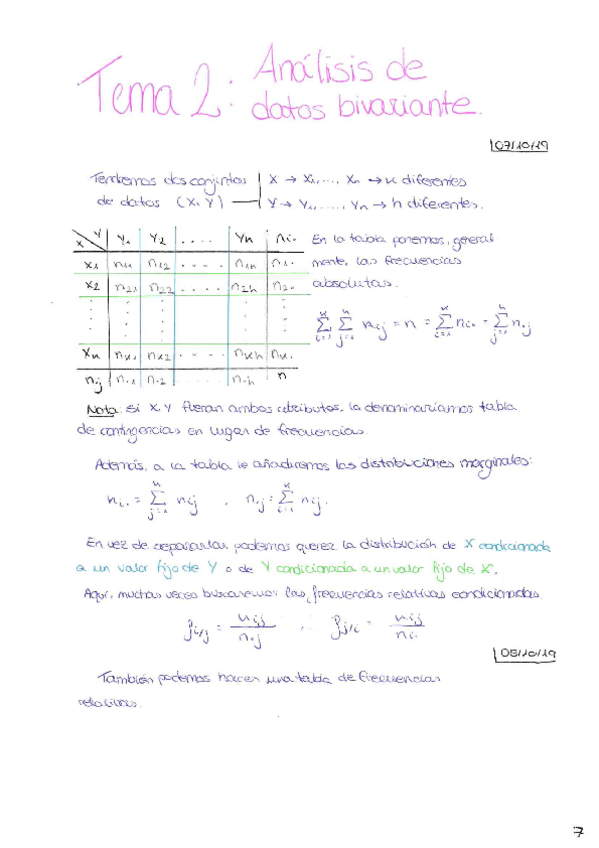 Tema 2: Análisis de
datos bivariante.
07/10/19
Tendremos dos conjuntos | X → X₁, ..., Xₖ → k diferentes
de datos (X, Y) — | Y → Y₁, ..., Yₕ → h diferentes.
X \ Y | Y₁ | Y₂ | .... | Yₕ | nᵢ.
X₁ | n₁₁ | n₁₂ | .... | n₁ₕ | n₁.
X₂ | n₂₁ | n₂₂ | .... | n₂ₕ | n₂.
Xₖ | nₖ₁ | nₖ₂ | .... | nₖₕ | nₖ.
n.j | n.₁ | n.₂ | | n.ₕ | n
En la tabla ponemos, general
mente, las frecuencias
absolutas.
∑ᵢ₌₁ᵏ ∑ⱼ₌₁ʰ nᵢⱼ = n = ∑ᵢ₌₁ᵏ nᵢ. = ∑ⱼ₌₁ʰ n.ⱼ
Nota: si X, Y fueran ambos atributos, la denominaríamos tabla
de contingencias en lugar de frecuencias.
Además, a la tabla le añadiremos las distribuciones marginales:
nᵢ. = ∑ⱼ₌₁ʰ nᵢⱼ , n.ⱼ = ∑ᵢ₌₁ᵏ nᵢⱼ.
En vez de separarlas, podemos querer la distribución de X condicionada
a un valor fijo de Y o de Y condicionada a un valor fijo de X.
Aquí, muchas veces buscaremos las frecuencias relativas condicionadas.
fᵢ/ⱼ = nᵢⱼ / n.ⱼ , fⱼ/ᵢ = nᵢⱼ / nᵢ.
08/10/19
También podemos hacer una tabla de frecuencias
relativas.
7